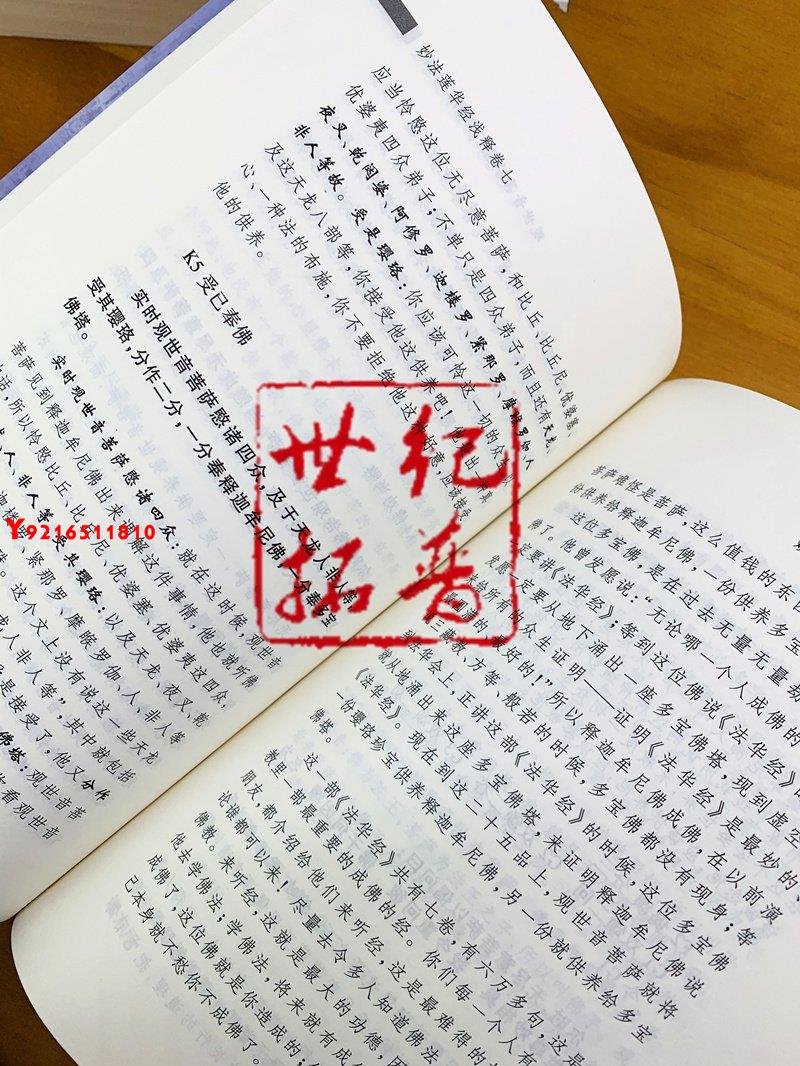 妙法莲华经浅释卷七
应当怜愍这位无尽意菩萨，和比丘、比丘尼、优婆塞、
优婆夷四众弟子；不单只是四众弟子，而且还有天龙、
夜叉、乾闼婆、阿修罗、迦楼罗、紧那罗、摩睺罗伽人
非人等故。受是璎珞：你应该可怜这一切的众
及这天龙八部等，你接受他这供养吧！他 出 真
心、一种法的布施，你不要拒绝他这种好意，应该接受
他的供养。
K5 受已奉佛
实时观世音菩萨愍诸四众，及于天龙人非人等，
受其璎珞，分作二分，一分奉释迦牟尼佛，一分奉多宝
佛塔。
实时观世音菩萨愍诸四众：就在这时候，观世音
菩萨见到释迦牟尼佛出来调解这件事情，他也就听佛
话，所以怜愍比丘、比丘尼、优婆塞、优婆夷这四众，
人、非人等，受其璎珞：以及天龙、夜叉、乾
迦楼 、紧那罗、摩睺罗伽、人、非人等
。这个文上没有说这一些天龙
人非人等”，其中就包括
是接受了，他又分作
佛塔：观世音菩
看观世音
菩萨难怪是菩萨，这么值钱的东西
份供养给释迦牟尼佛，一份供养多宝
这位多宝佛，是在过去无量无量劫
佛了。他曾发愿说：“无论哪一个人成佛的
定要讲《法华经》；等到这位佛说《法华经》
发愿 定要从地下涌出一座多宝佛塔，现到虚空
来给所有的众生证明——证明《法华经》是最妙的、
最 的、最好的！”所以释迦牟尼佛成佛，在以前演
三藏教、方等、般若的时候，多宝佛都没有现身；等
到法华会上，正讲这部《法华经》的时候，这位多宝佛
就从地涌出来这座多宝佛塔，来证明释迦牟尼佛说
《法华经》。现在到这二十五品上，观世音菩萨就将
一份璎珞珍宝供养释迦牟尼佛，另一份就供养给多宝
佛塔。
这一部《法华经》共有七卷，有六万多句，这是
教里一部最重要的成佛的经。你们每一个人有
朋友，都介绍给他们来听经，这是最难得的
论谁都可以来！尽量去令多人知道佛法
佛教。来听经，这就是最大的功德，因
他去学佛法；学佛法，将来就有成
成佛了，这位佛就是你造成的；
己本身就不愁你不成佛了。
世纪
拓普
9216511810